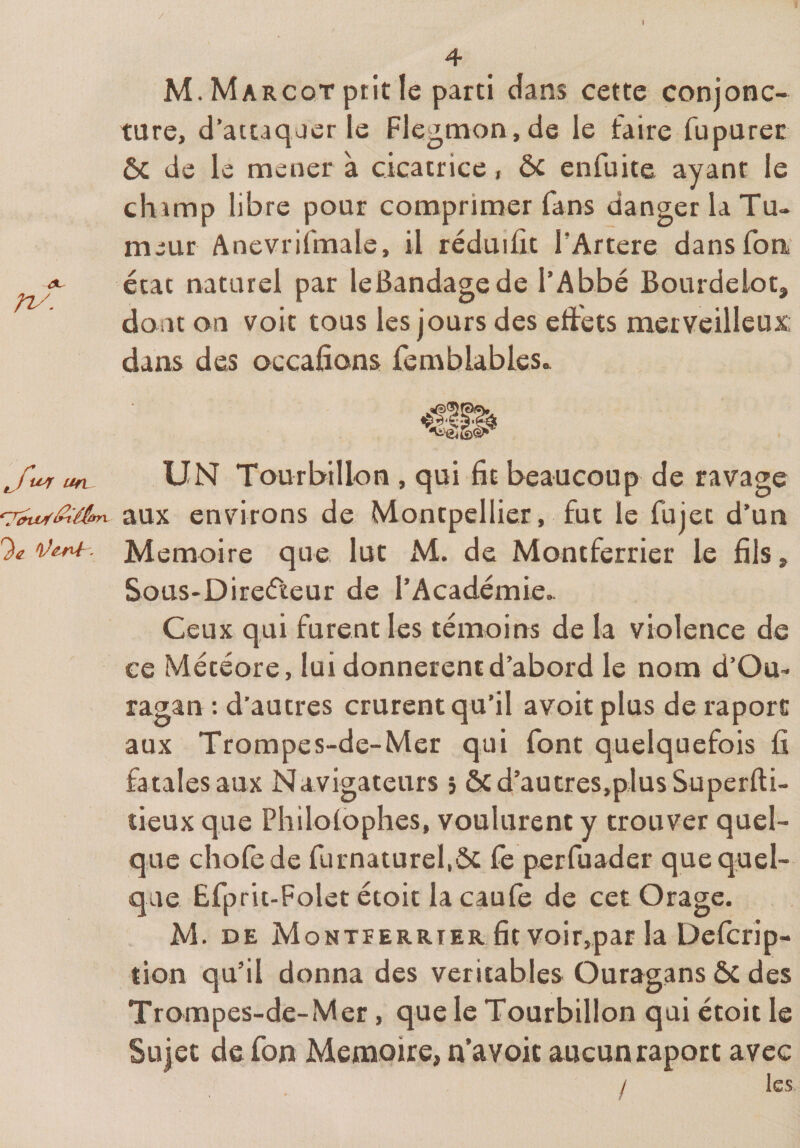 4
M. MARCOT prit le parti dans cette conjonc-
ture, d'attaquer le Flegmon, de le faire ſupurer
& de le mener à cicatrice, & enſuite ayant le
champ libre pour comprimer ſans danger la Tu-
meur Anevriſmale, il réduiſit l'Artere dans ſon
état naturel par le Bandage de l'Abbé Bourdelot,
dont on voit tous les jours des effets merveilleux
dans des occaſions ſemblables.
ſur un
Tourbillon
De Vent.
UN Tourbillon, qui fit beaucoup de ravage
aux environs de Montpellier, fut le ſujet d'un
Memoire que lut M. de Montferrier le fils,
Sous-Directeur de l'Académie.
Ceux qui furent les témoins de la violence de
ce Météore, lui donnerent d'abord le nom d'Ou-
ragan : d'autres crurent qu'il avoit plus de raport
aux Trompes-de-Mer qui ſont quelquefois ſi
fatales aux Navigateurs ; & d'autres, plus Superſti-
tieux que Philoſophes, voulurent y trouver quel-
que choſe de ſurnaturel, & ſe perſuader que quel-
que Eſprit-Folet étoit la cauſe de cet Orage.
M. DE MONTFERRIER fit voir, par la Deſcrip-
tion qu'il donna des veritables Ouragans & des
Trompes-de-Mer, que le Tourbillon qui étoit le
Sujet de ſon Memoire, n'avoit aucun raport avec
les